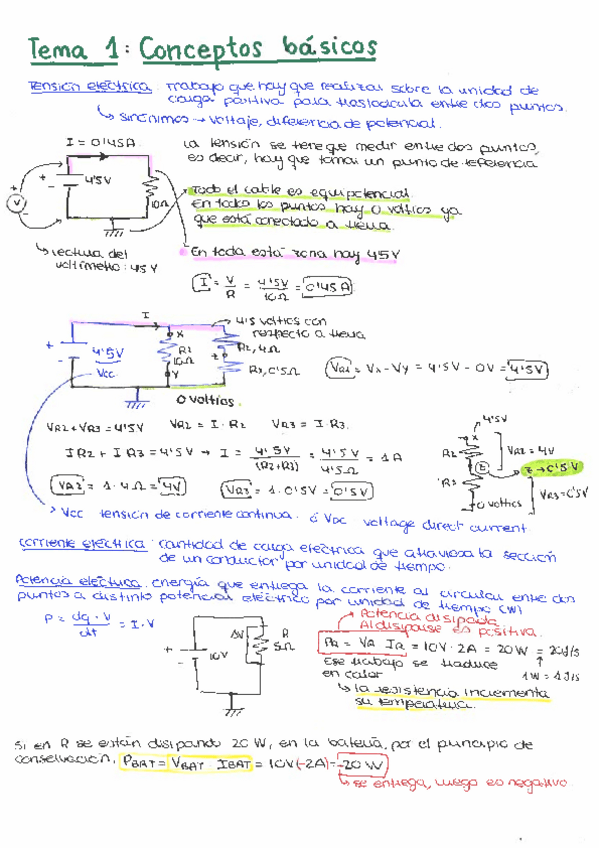 Tema 1: Conceptos básicos
Tensión eléctrica: Trabajo que hay que realizar sobre la unidad de
carga positiva para trasladarla entre dos puntos.
↳ sinónimos → voltaje, diferencia de potencial.
I = 0'45A
La tensión se tiene que medir entre dos puntos,
es decir, hay que tomar un punto de referencia
+
V
-
+
-
4'5V
10Ω
Todo el cable es equipotencial.
En todos los puntos hay 0 voltios ya
que está conectado a tierra.
↳ Lectura del
voltímetro: 4'5V
En toda está zona hay 4'5V
I = V/R = 4'5V/10Ω = 0'45A
I
4'5 voltios con
respecto a tierra
+
-
4'5V
Vcc
x
R1
10Ω
y
R2, 4Ω
z
R3, 0'5Ω
0 voltios.
VR1 = Vx - Vy = 4'5V - 0V = 4'5V
VR2 + VR3 = 4'5V VR2 = I · R2 VR3 = I · R3.
IR2 + IR3 = 4'5V → I = 4'5V/(R2+R3) = 4'5V/4'5Ω = 1A
VR2 = 1 · 4Ω = 4V VR3 = 1 · 0'5V = 0'5V
4'5V
x
R2
z
R3
VR2 = 4V
z → 0'5V
VR3 = 0'5V
0 voltios
Vcc tensión de corriente continua. ó VDC voltage direct current
Corriente eléctrica: cantidad de carga eléctrica que atraviesa la sección
de un conductor por unidad de tiempo.
Potencia eléctrica: energía que entrega la corriente al circular entre dos
puntos a distinto potencial eléctrico por unidad de tiempo (W)
P = dq · V/dt = I · V
+
-
10V
ΔV
R
5Ω
Potencia disipada
Al disiparse es positiva.
PR = VR IR = 10V · 2A = 20W = 20J/s
Ese trabajo se traduce
en calor
1W = 1J/s
↳ la resistencia incrementa
su temperatura.
Si en R se están disipando 20W, en la batería, por el principio de
conservación, PBAT = VBAT IBAT = 10V(-2A) = -20W
↳ se entrega, luego es negativo